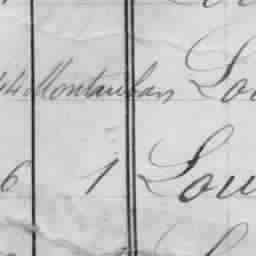 44 Montauban Lou
6 1 Lou